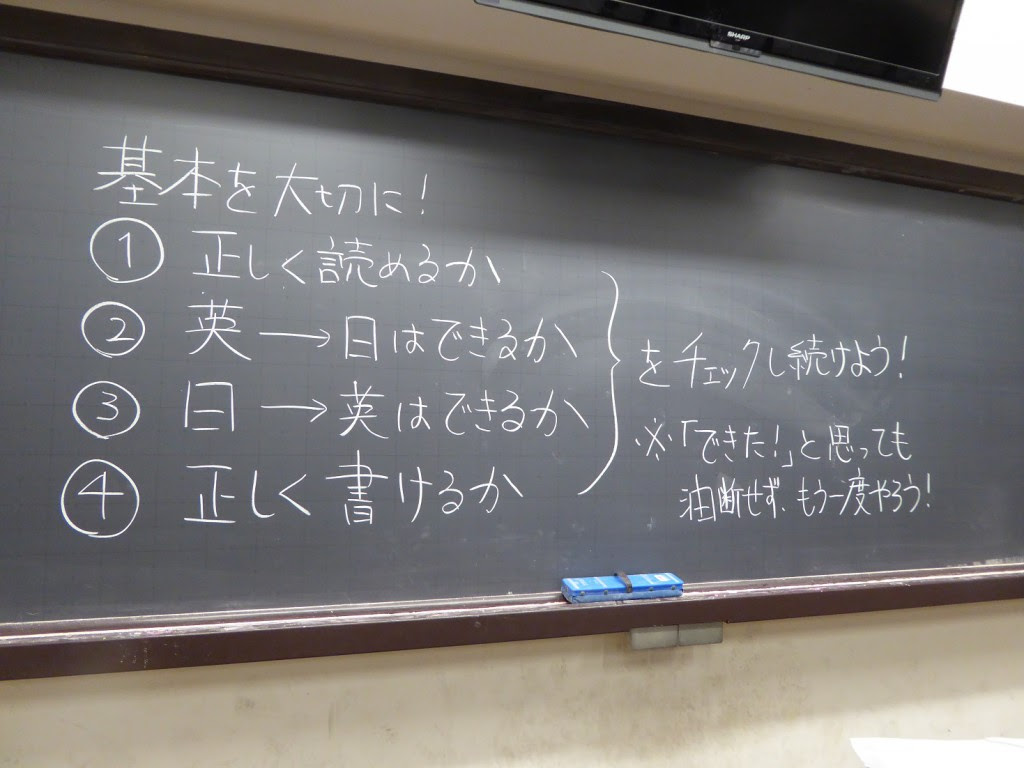 SHARP
基本を大切に!
① 正しく読めるか
② 英→日はできるか
③ 日→英はできるか
④ 正しく書けるか
をチェックし続けよう!
※「できた!」と思っても
油断せず、もう一度やろう!